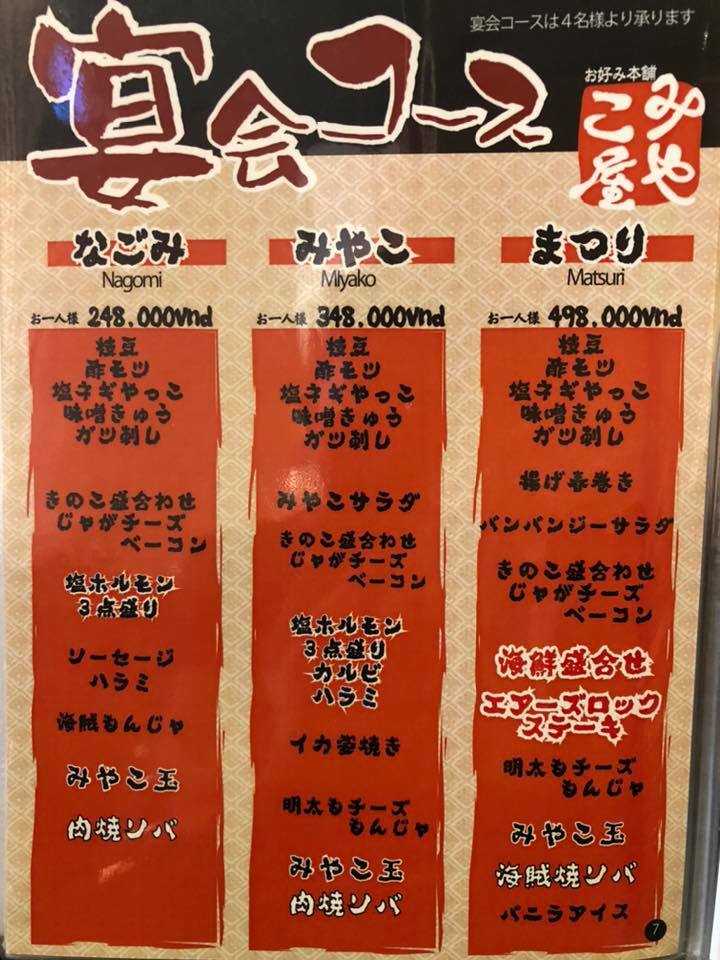 宴会コースは4名様より承ります
宴会コース
お好み本舗
みや
こ屋
なごみ
Nagomi
お一人様 248,000vnd
枝豆
酢モツ
塩ネギやっこ
味噌きゅう
ガツ刺し
きのこ盛合わせ
じゃがチーズ
ベーコン
塩ホルモン
3点盛り
ソーセージ
ハラミ
海賊もんじゃ
みやこ玉
肉焼ソバ
みやこ
Miyako
お一人様 348,000vnd
枝豆
酢モツ
塩ネギやっこ
味噌きゅう
ガツ刺し
みやこサラダ
きのこ盛合わせ
じゃがチーズ
ベーコン
塩ホルモン
3点盛り
カルビ
ハラミ
イカ壺焼き
明太もチーズ
もんじゃ
みやこ玉
肉焼ソバ
まつり
Matsuri
お一人様 498,000vnd
枝豆
酢モツ
塩ネギやっこ
味噌きゅう
ガツ刺し
揚げ春巻き
バンバンジーサラダ
きのこ盛合わせ
じゃがチーズ
ベーコン
海鮮盛合せ
エアーズロック
ステーキ
明太もチーズ
もんじゃ
みやこ玉
海賊焼ソバ
バニラアイス
7